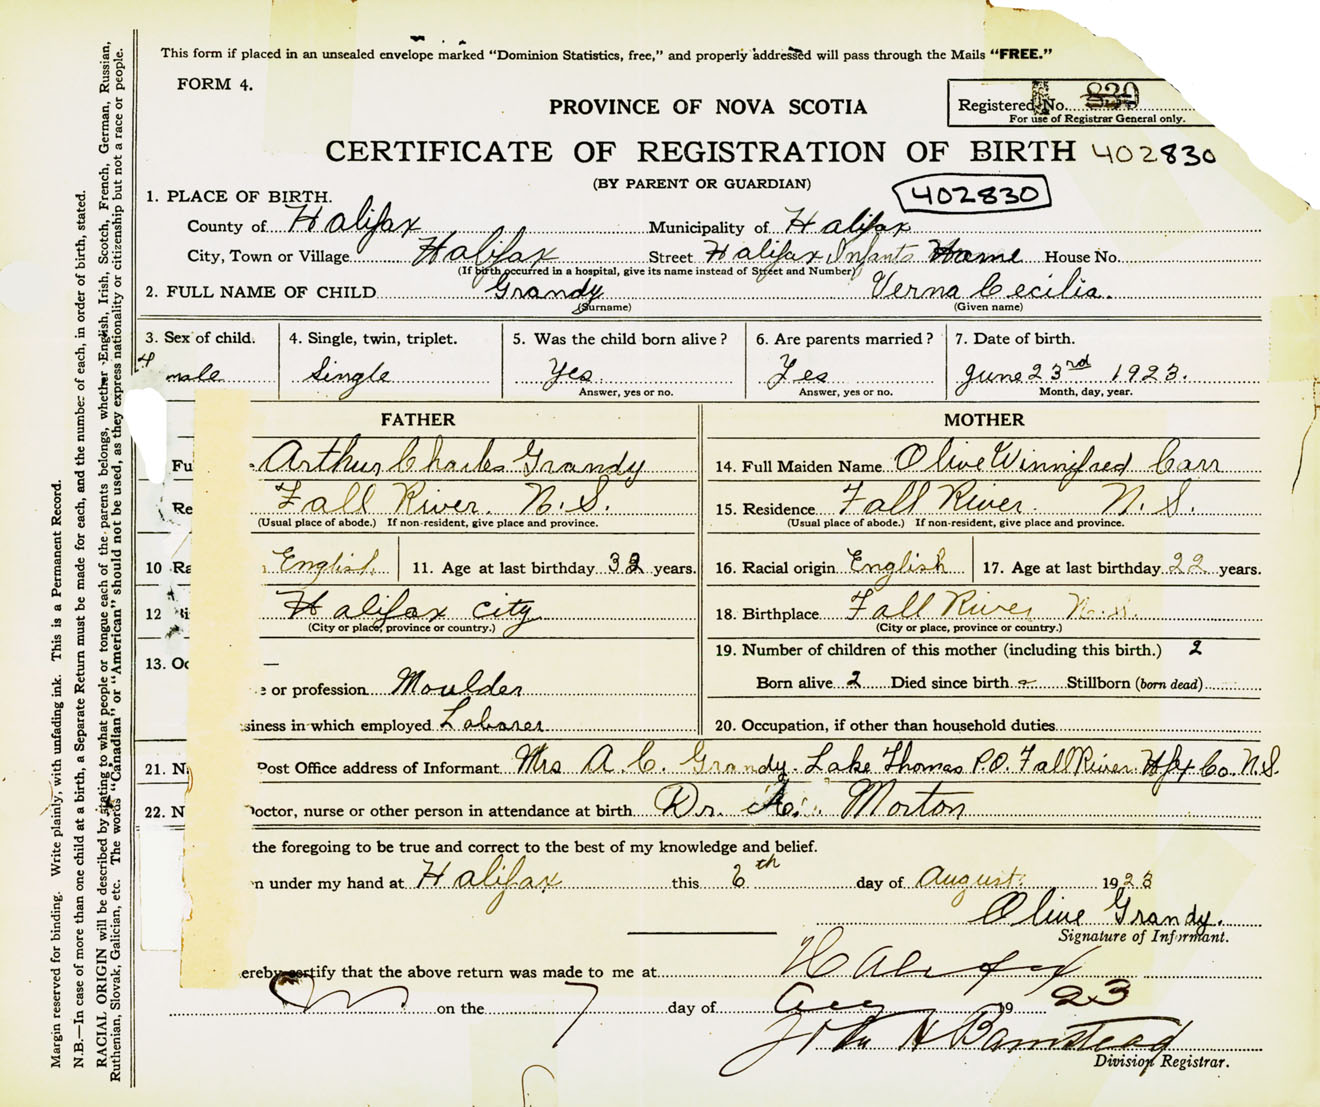 This form if placed in an unsealed envelope marked "Dominion Statistics, free," and properly addressed will pass through the Mails "FREE."
FORM 4.
PROVINCE OF NOVA SCOTIA
Registered No. 830
For use of Registrar General only.
CERTIFICATE OF REGISTRATION OF BIRTH 402830
(BY PARENT OR GUARDIAN)
402830
1. PLACE OF BIRTH.
County of Halifax Municipality of Halifax
City, Town or Village Halifax Street Halifax Infants Home House No.
(If birth occurred in a hospital, give its name instead of Street and Number)
2. FULL NAME OF CHILD Grandy Verna Cecilia.
(Surname) (Given name)
3. Sex of child. 4. Single, twin, triplet. 5. Was the child born alive? 6. Are parents married? 7. Date of birth.
male Single Yes Yes June 23rd 1923.
Answer, yes or no. Answer, yes or no. Month, day, year.
FATHER MOTHER
Fu Arthur Charles Grandy 14. Full Maiden Name Olive Winnifred Carr
Re Fall River. N.S. 15. Residence Fall River. N.S.
(Usual place of abode.) If non-resident, give place and province. (Usual place of abode.) If non-resident, give place and province.
10 Ra English 11. Age at last birthday 32 years. 16. Racial origin English 17. Age at last birthday 22 years.
12 Halifax City 18. Birthplace Fall River N.S.
(City or place, province or country.) (City or place, province or country.)
13. Oc 19. Number of children of this mother (including this birth.) 2
e or profession Moulder Born alive 2 Died since birth Stillborn (born dead)
siness in which employed Laborer 20. Occupation, if other than household duties
21. N Post Office address of Informant Mrs A. C. Grandy. Lake Thomas P.O. Fall River Hfx Co. N.S.
22. N Doctor, nurse or other person in attendance at birth Dr. A. Morton
the foregoing to be true and correct to the best of my knowledge and belief.
n under my hand at Halifax this 6th day of August 1923
Olive Grandy.
Signature of Informant.
ereby certify that the above return was made to me at Halifax
on the 7 day of Aug 1923
John H Barnstead
Division Registrar.
Margin reserved for binding. Write plainly, with unfading ink. This is a Permanent Record.
N.B.—In case of more than one child at a birth, a Separate Return must be made for each, and the number of each, in order of birth, stated.
RACIAL ORIGIN will be described by stating to what people or tongue each of the parents belongs, whether English, Irish, Scotch, French, German, Russian,
Ruthenian, Slovak, Galician, etc. The words "Canadian" or "American" should not be used, as they express nationality or citizenship but not a race or people.